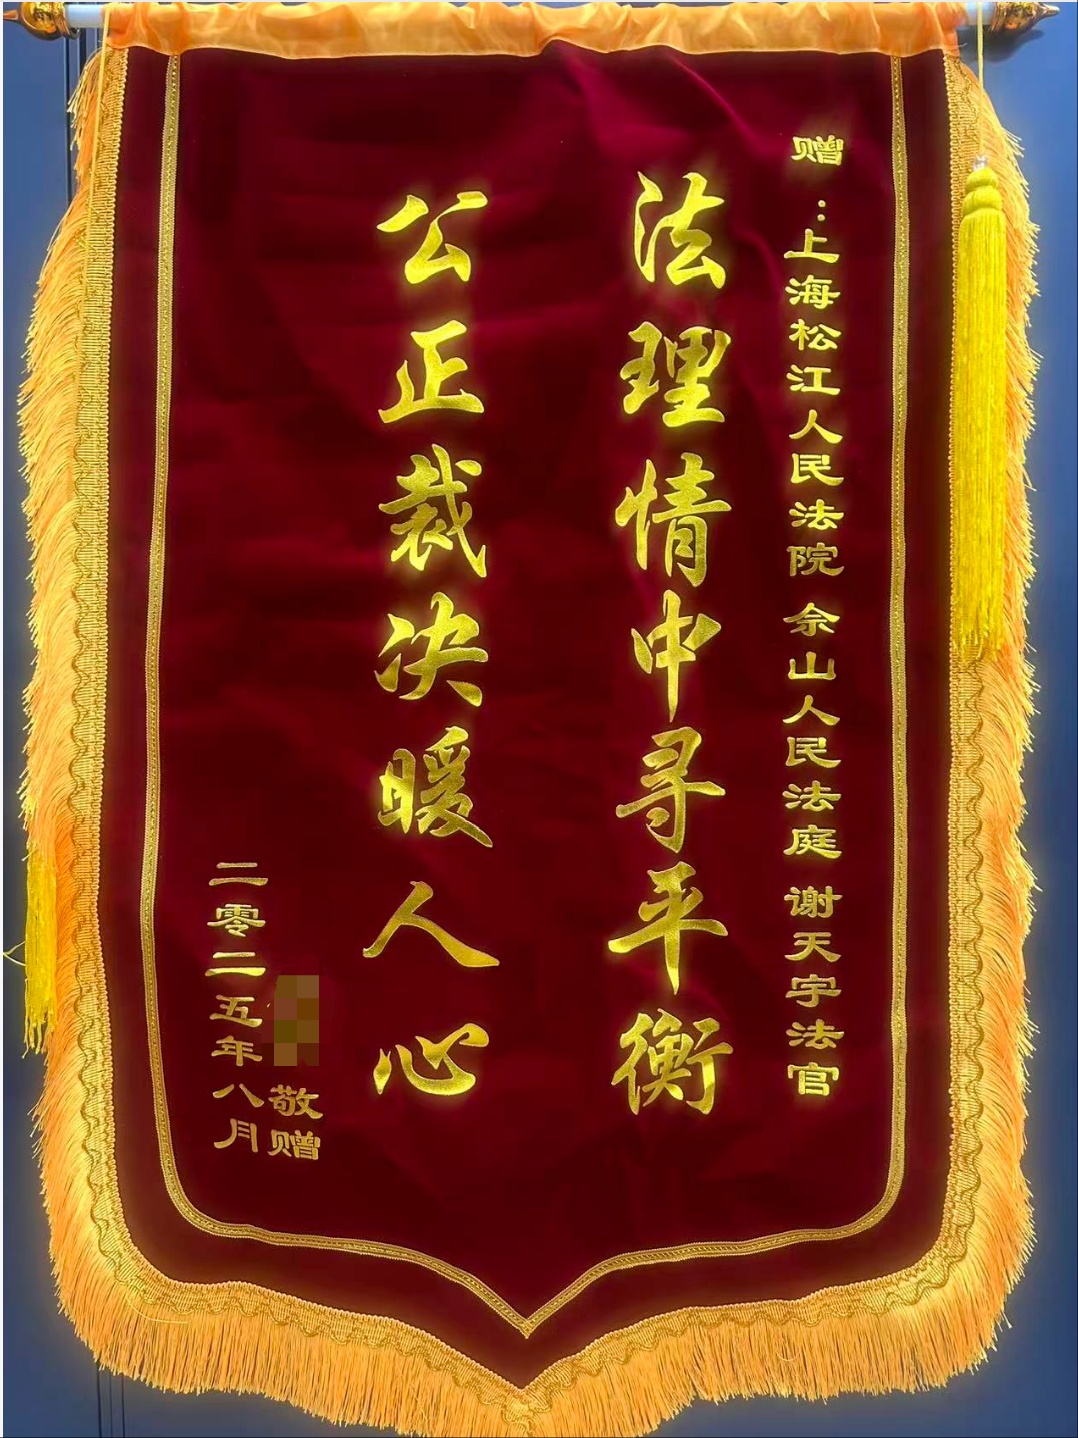 赠：上海松江人民法院 佘山人民法庭 谢天宇法官
法理情中寻平衡
公正裁决暖人心
敬赠
二零二五年八月